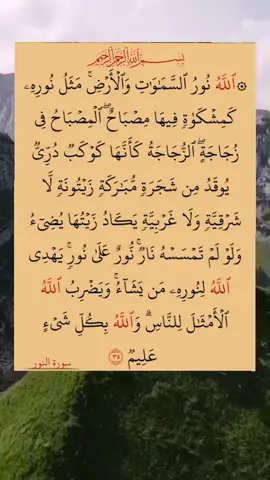 بِسْمِ اللَّهِ الرَّحْمَٰنِ الرَّحِيمِ
۞ ٱللَّهُ نُورُ ٱلسَّمَٰوَٰتِ وَٱلْأَرْضِ ۚ مَثَلُ نُورِهِۦ
كَمِشْكَوٰةٍ فِيهَا مِصْبَاحٌ ۖ ٱلْمِصْبَاحُ فِى
زُجَاجَةٍ ۖ ٱلزُّجَاجَةُ كَأَنَّهَا كَوْكَبٌ دُرِّىٌّ
يُوقَدُ مِن شَجَرَةٍ مُّبَٰرَكَةٍ زَيْتُونَةٍ لَّا
شَرْقِيَّةٍ وَلَا غَرْبِيَّةٍ يَكَادُ زَيْتُهَا يُضِىٓءُ
وَلَوْ لَمْ تَمْسَسْهُ نَارٌ ۚ نُّورٌ عَلَىٰ نُورٍ ۗ يَهْدِى
ٱللَّهُ لِنُورِهِۦ مَن يَشَآءُ ۚ وَيَضْرِبُ ٱللَّهُ
ٱلْأَمْثَٰلَ لِلنَّاسِ ۗ وَٱللَّهُ بِكُلِّ شَىْءٍ
عَلِيمٌ ٣٥
سورة النور